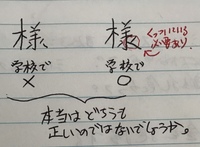 様、 様、
くっついている
必要あり
学校で 学校で
× ○
本当はどちらも
正しいのではないでしょうか。